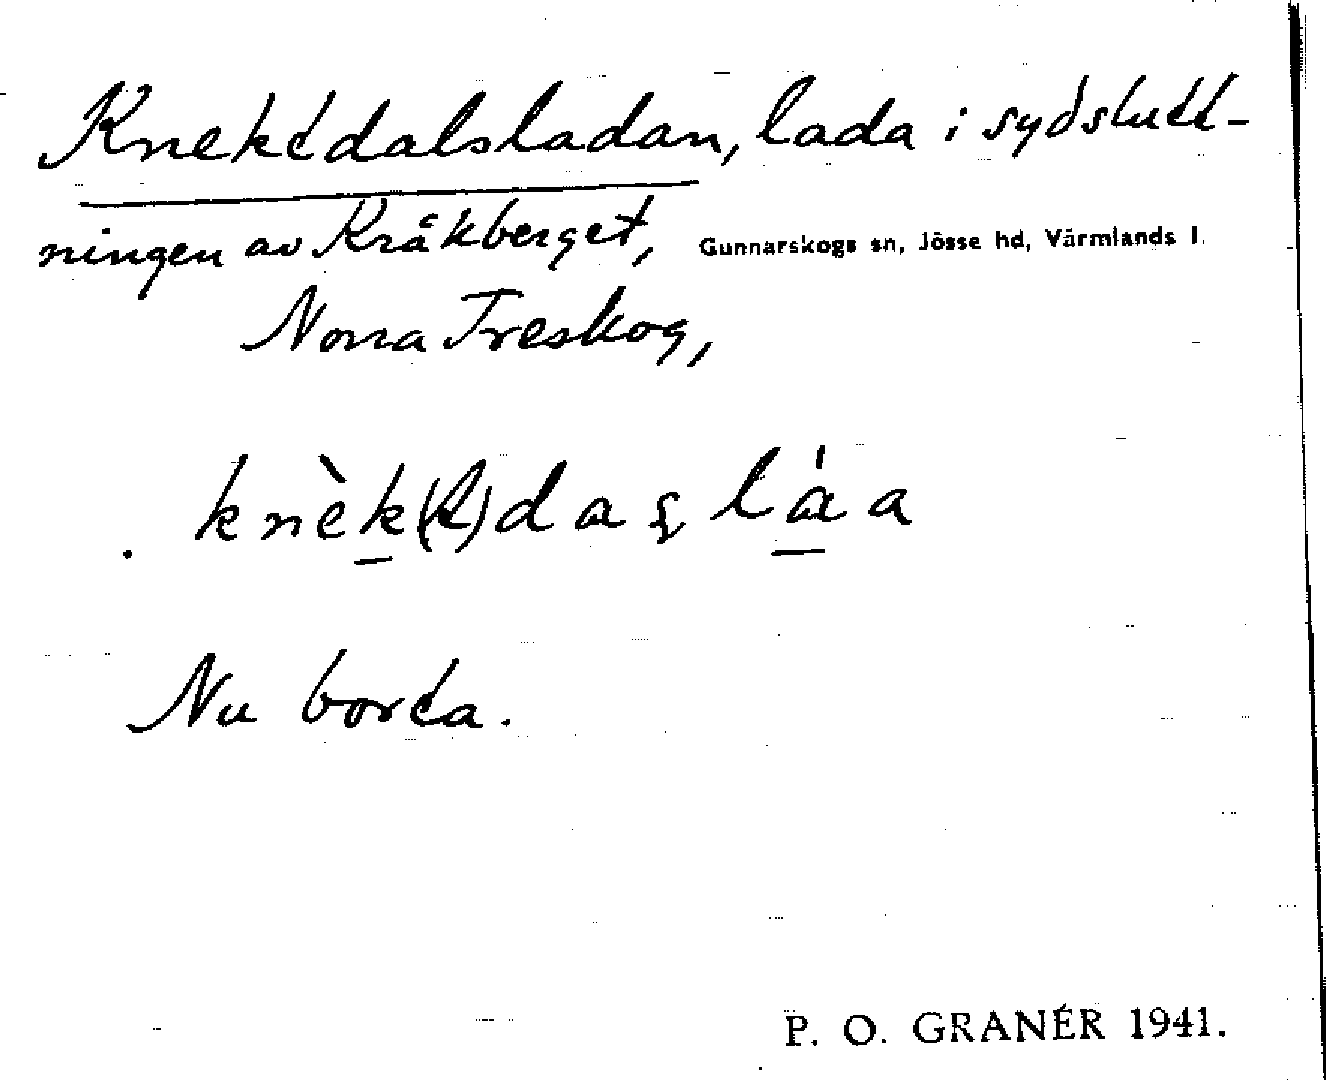 Knektdalsladan, lada i sydslutt-
ningen av Kråkberget, Gunnarskogs sn, Jösse hd, Värmlands l.
Norra Treskog,
Nu borta.
P. O. GRANÉR 1941.